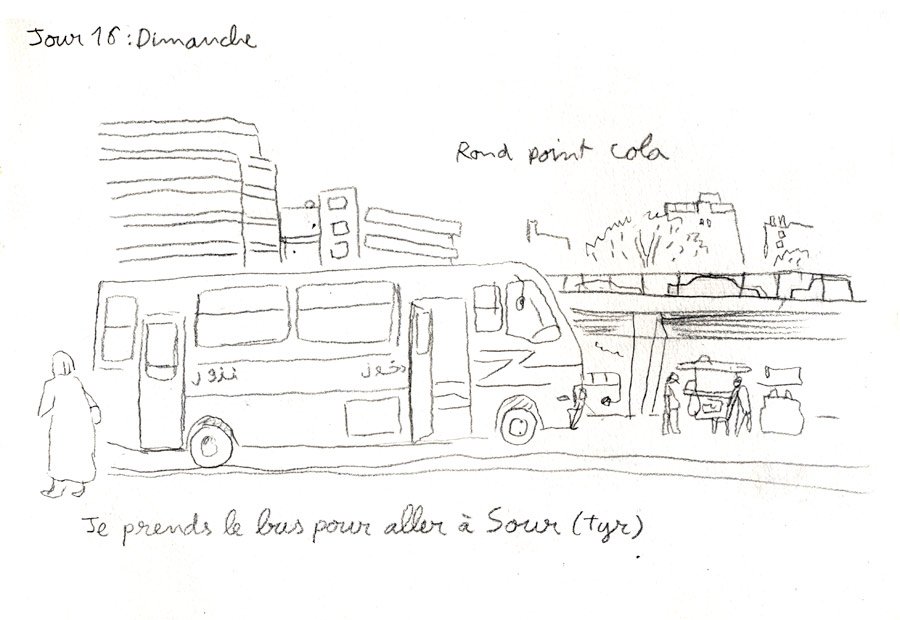 Jour 16 : Dimanche
Rond point cola
Je prends le bus pour aller à Sour (tyr)